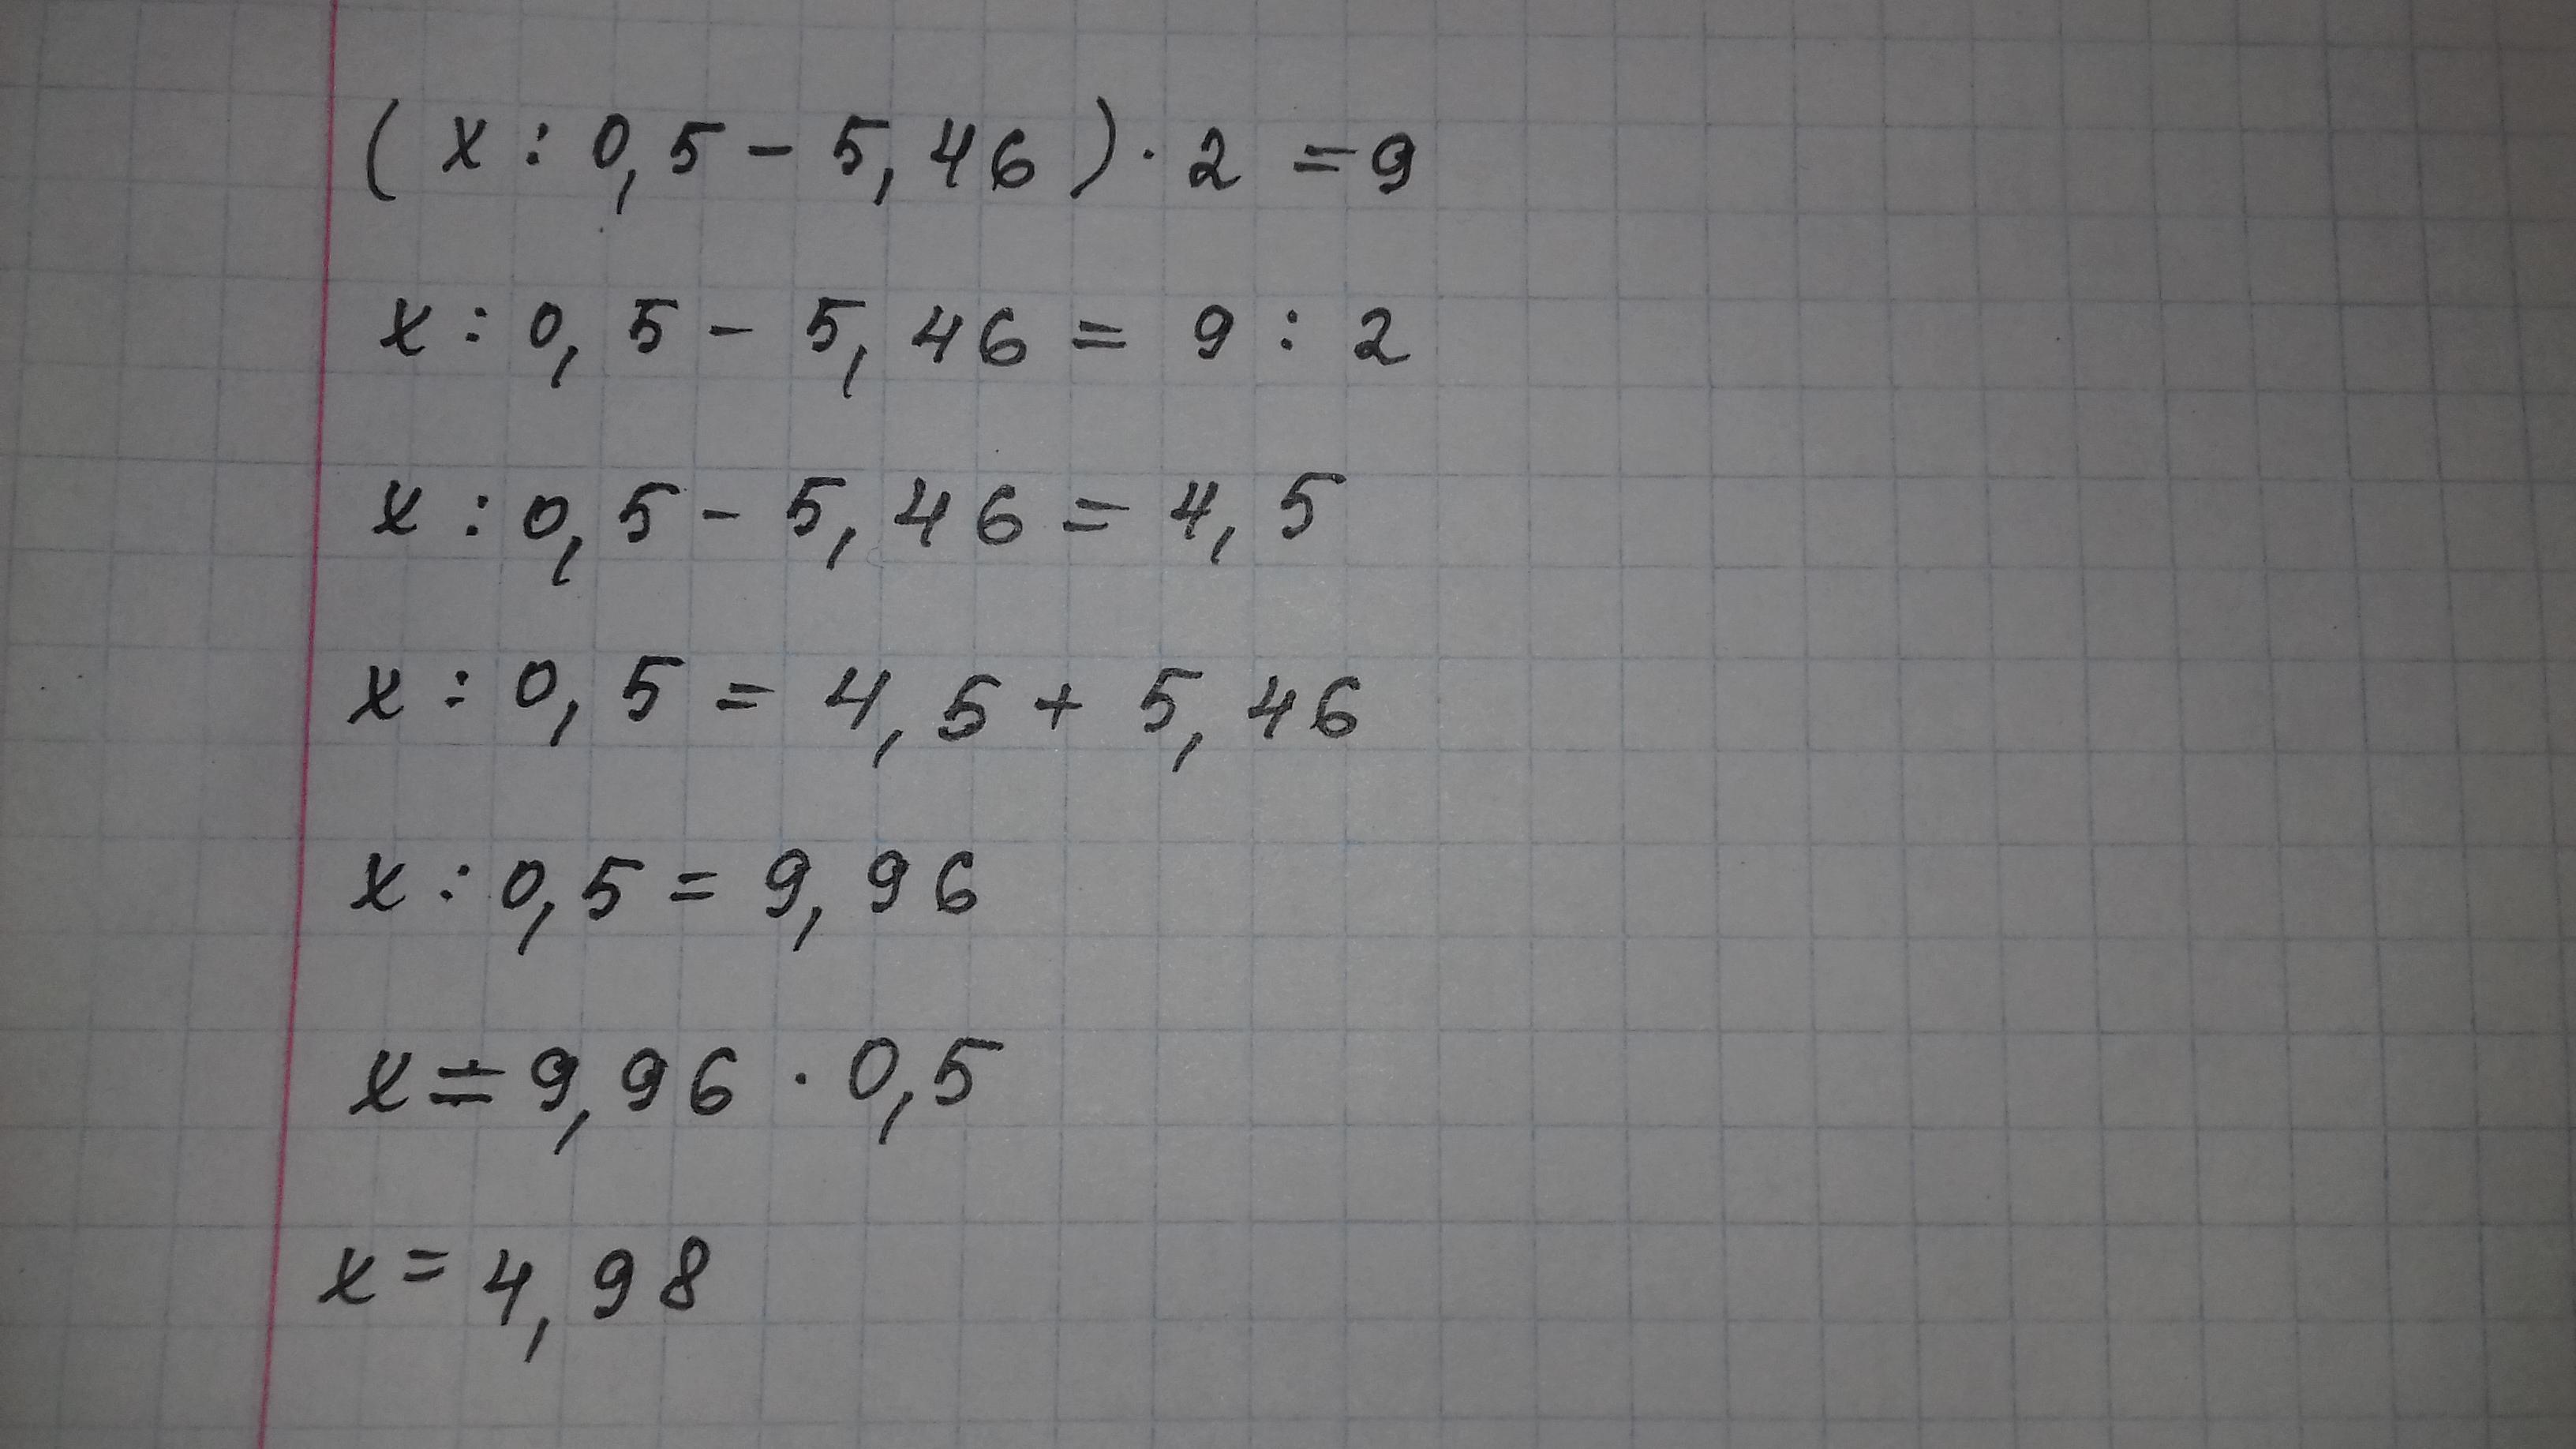 (x : 0,5 - 5,46) · 2 = 9
x : 0,5 - 5,46 = 9 : 2
x : 0,5 - 5,46 = 4,5
x : 0,5 = 4,5 + 5,46
x : 0,5 = 9,96
x = 9,96 · 0,5
x = 4,98